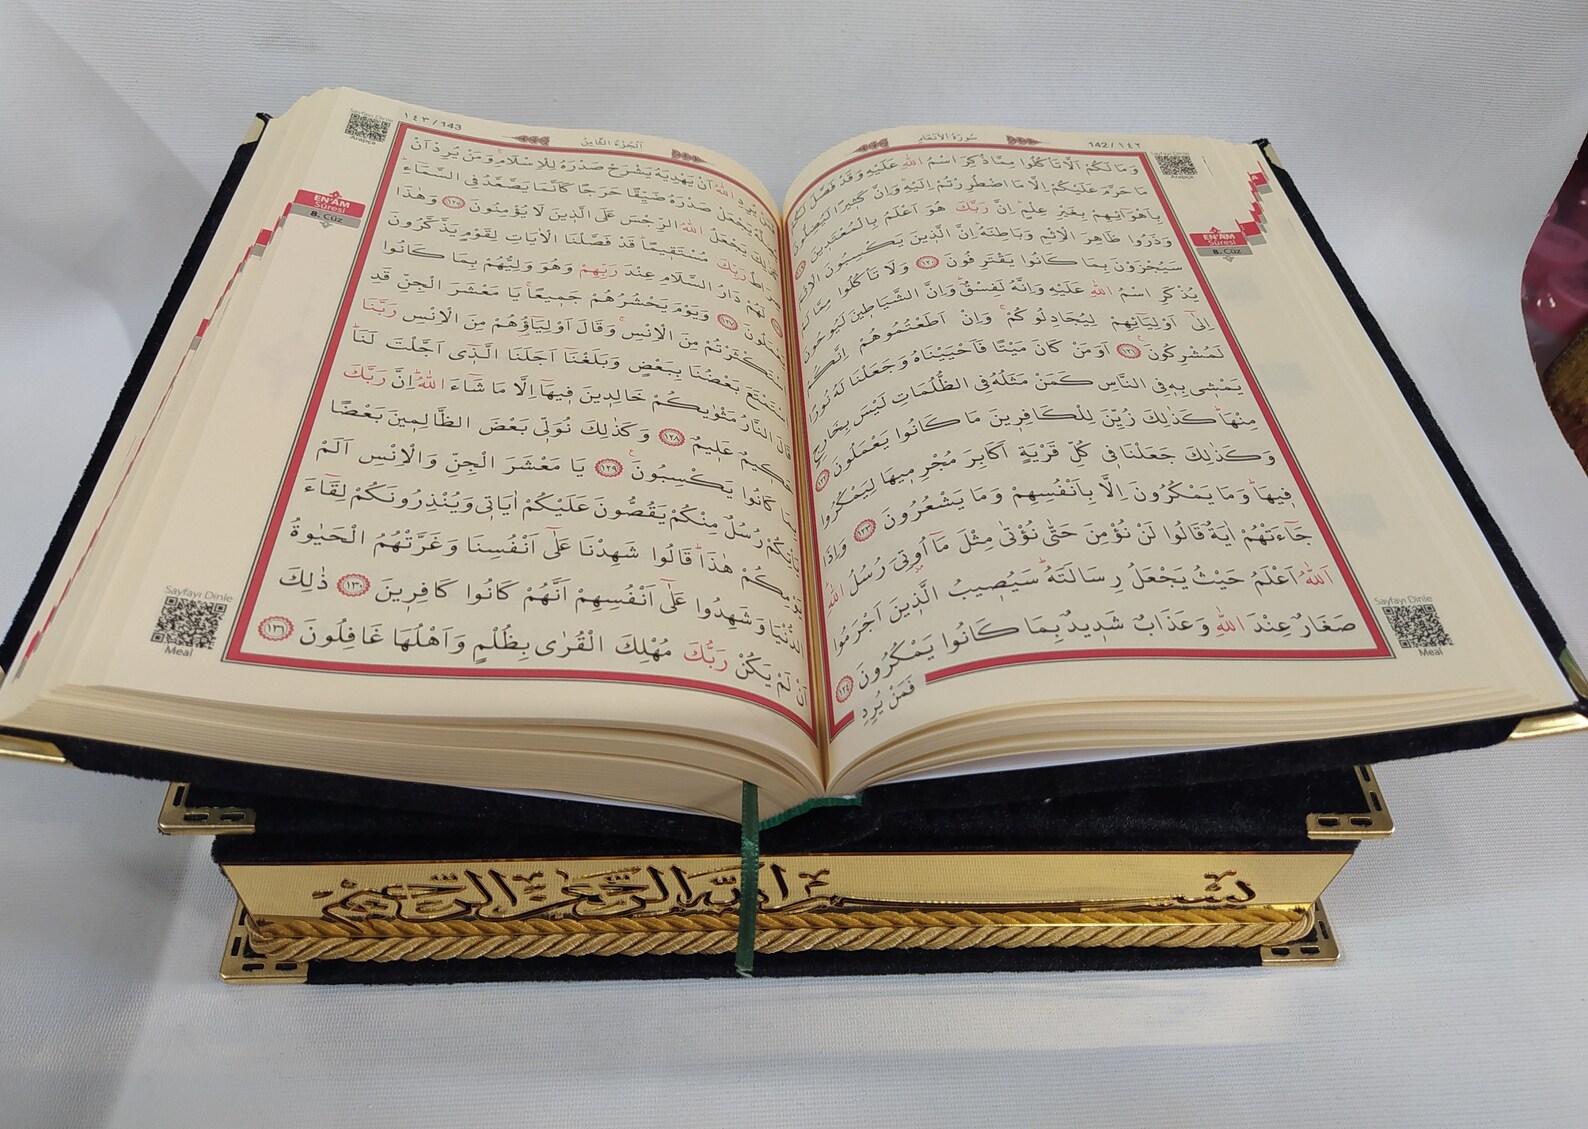 142 / ١٤٢
سُورَةُ الْاَنْعَامِ
وَمَا لَكُمْ اَلَّا تَأْكُلُوا مِمَّا ذُكِرَ اسْمُ اللّٰهِ عَلَيْهِ وَقَدْ فَصَّلَ لَكُمْ
مَا حَرَّمَ عَلَيْكُمْ اِلَّا مَا اضْطُرِرْتُمْ اِلَيْهِۜ وَاِنَّ كَثِيرًا لَيُضِلُّونَ
بِاَهْوَٓائِهِمْ بِغَيْرِ عِلْمٍۜ اِنَّ رَبَّكَ هُوَ اَعْلَمُ بِالْمُعْتَدِينَ ١١٩
وَذَرُوا ظَاهِرَ الْاِثْمِ وَبَاطِنَهُۜ اِنَّ الَّذِينَ يَكْسِبُونَ الْاِثْمَ
سَيُجْزَوْنَ بِمَا كَانُوا يَقْتَرِفُونَ ١٢٠ وَلَا تَأْكُلُوا مِمَّا لَمْ
يُذْكَرِ اسْمُ اللّٰهِ عَلَيْهِ وَاِنَّهُ لَفِسْقٌۜ وَاِنَّ الشَّيَاطِينَ لَيُوحُونَ
اِلٰٓى اَوْلِيَٓائِهِمْ لِيُجَادِلُوكُمْۚ وَاِنْ اَطَعْتُمُوهُمْ اِنَّكُمْ
لَمُشْرِكُونَ ١٢١ اَوَمَنْ كَانَ مَيْتًا فَاَحْيَيْنَاهُ وَجَعَلْنَا لَهُ نُورًا
يَمْشِي بِهِ فِي النَّاسِ كَمَنْ مَثَلُهُ فِي الظُّلُمَاتِ لَيْسَ بِخَارِجٍ
مِنْهَاۜ كَذٰلِكَ زُيِّنَ لِلْكَافِرِينَ مَا كَانُوا يَعْمَلُونَ ١٢٢
وَكَذٰلِكَ جَعَلْنَا فِي كُلِّ قَرْيَةٍ اَكَابِرَ مُجْرِمِيهَا لِيَمْكُرُوا
فِيهَاۜ وَمَا يَمْكُرُونَ اِلَّا بِاَنْفُسِهِمْ وَمَا يَشْعُرُونَ ١٢٣ وَاِذَا
جَٓاءَتْهُمْ اٰيَةٌ قَالُوا لَنْ نُؤْمِنَ حَتّٰى نُؤْتٰى مِثْلَ مَٓا اُو۫تِيَ رُسُلُ اللّٰهِۜ
اَللّٰهُ اَعْلَمُ حَيْثُ يَجْعَلُ رِسَالَتَهُۜ سَيُصِيبُ الَّذِينَ اَجْرَمُوا
صَغَارٌ عِنْدَ اللّٰهِ وَعَذَابٌ شَدِيدٌ بِمَا كَانُوا يَمْكُرُونَ ١٢٤
فَمَنْ يُرِدِ
EN'ÂM
Sûresi
8. Cüz
Sayfayı Dinle
Arapça
Sayfayı Dinle
Meal
١٤٣ / 143
اَلْجُزْءُ الثَّامِنُ
يُرِدِ اللّٰهُ اَنْ يَهْدِيَهُ يَشْرَحْ صَدْرَهُ لِلْاِسْلَامِۚ وَمَنْ يُرِدْ اَنْ
يَجْعَلْ صَدْرَهُ ضَيِّقًا حَرَجًا كَاَنَّمَا يَصَّعَّدُ فِي السَّمَٓاءِۜ
يَجْعَلُ اللّٰهُ الرِّجْسَ عَلَى الَّذِينَ لَا يُؤْمِنُونَ ١٢٥ وَهٰذَا
رَبِّكَ مُسْتَقِيمًاۜ قَدْ فَصَّلْنَا الْاٰيَاتِ لِقَوْمٍ يَذَّكَّرُونَ
لَهُمْ دَارُ السَّلَامِ عِنْدَ رَبِّهِمْ وَهُوَ وَلِيُّهُمْ بِمَا كَانُوا
يَعْمَلُونَ ١٢٧ وَيَوْمَ يَحْشُرُهُمْ جَمِيعًاۚ يَا مَعْشَرَ الْجِنِّ قَدِ
اسْتَكْثَرْتُمْ مِنَ الْاِنْسِۚ وَقَالَ اَوْلِيَٓاؤُ۬هُمْ مِنَ الْاِنْسِ رَبَّنَا
اسْتَمْتَعَ بَعْضُنَا بِبَعْضٍ وَبَلَغْنَٓا اَجَلَنَا الَّذِي اَجَّلْتَ لَنَاۜ
قَالَ النَّارُ مَثْوٰيكُمْ خَالِدِينَ فِيهَٓا اِلَّا مَا شَٓاءَ اللّٰهُۜ اِنَّ رَبَّكَ
حَكِيمٌ عَلِيمٌ ١٢٨ وَكَذٰلِكَ نُوَلِّي بَعْضَ الظَّالِمِينَ بَعْضًا
بِمَا كَانُوا يَكْسِبُونَ ١٢٩ يَا مَعْشَرَ الْجِنِّ وَالْاِنْسِ اَلَمْ
يَأْتِكُمْ رُسُلٌ مِنْكُمْ يَقُصُّونَ عَلَيْكُمْ اٰيَاتِي وَيُنْذِرُونَكُمْ لِقَٓاءَ
يَوْمِكُمْ هٰذَاۜ قَالُوا شَهِدْنَا عَلٰٓى اَنْفُسِنَا وَغَرَّتْهُمُ الْحَيٰوةُ
الدُّنْيَا وَشَهِدُوا عَلٰٓى اَنْفُسِهِمْ اَنَّهُمْ كَانُوا كَافِرِينَ ١٣٠ ذٰلِكَ
اَنْ لَمْ يَكُنْ رَبُّكَ مُهْلِكَ الْقُرٰى بِظُلْمٍ وَاَهْلُهَا غَافِلُونَ ١٣١
EN'ÂM
Sûresi
8. Cüz
Sayfayı Dinle
Arapça
Sayfayı Dinle
Meal
بسم الله الرحمن الرحيم